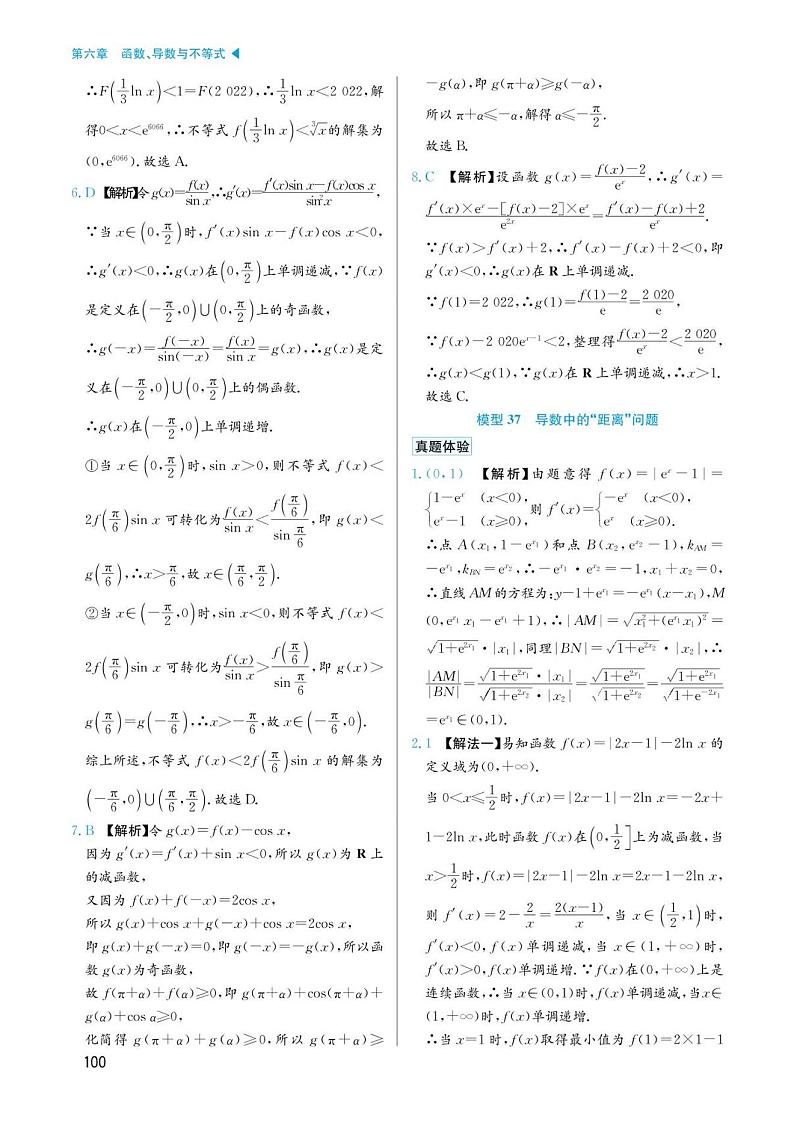 第六章 函数、导数与不等式
∴F(1/3 ln x)<1=F(2 022),∴1/3 ln x<2 022,解
得0<x<e^6066,∴不等式 f(1/3 ln x)<∛x的解集为
(0,e^6066).故选 A.
6.D 【解析】令g(x)=f(x)/sin x,∴g′(x)=(f′(x)sin x−f(x)cos x)/sin²x,
∵当 x∈(0,π/2)时,f′(x)sin x−f(x)cos x<0,
∴g′(x)<0,∴g(x)在(0,π/2)上单调递减,∵f(x)
是定义在(−π/2,0)∪(0,π/2)上的奇函数,
∴g(−x)=f(−x)/sin(−x)=f(x)/sin x=g(x),∴g(x)是定
义在(−π/2,0)∪(0,π/2)上的偶函数.
∴g(x)在(−π/2,0)上单调递增.
①当 x∈(0,π/2)时,sin x>0,则不等式 f(x)<
2f(π/6)sin x 可转化为f(x)/sin x<f(π/6)/sin π/6,即 g(x)<
g(π/6),∴x>π/6,故 x∈(π/6,π/2).
②当 x∈(−π/2,0)时,sin x<0,则不等式 f(x)<
2f(π/6)sin x 可转化为f(x)/sin x>f(π/6)/sin π/6,即 g(x)>
g(π/6)=g(−π/6),∴x>−π/6,故 x∈(−π/6,0).
综上所述,不等式 f(x)<2f(π/6)sin x 的解集为
(−π/6,0)∪(π/6,π/2).故选 D.
7.B 【解析】令 g(x)=f(x)−cos x,
因为 g′(x)=f′(x)+sin x<0,所以 g(x)为 R 上
的减函数,
又因为 f(x)+f(−x)=2cos x,
所以 g(x)+cos x+g(−x)+cos x=2cos x,
即 g(x)+g(−x)=0,即 g(−x)=−g(x),所以函
数 g(x)为奇函数,
故 f(π+α)+f(α)≥0,即 g(π+α)+cos(π+α)+
g(α)+cos α≥0,
化简得 g(π+α)+g(α)≥0,所以 g(π+α)≥
100
−g(α),即 g(π+α)≥g(−α),
所以 π+α≤−α,解得 α≤−π/2.
故选 B.
8.C 【解析】设函数 g(x)=(f(x)−2)/e^x,∴g′(x)=
(f′(x)×e^x−[f(x)−2]×e^x)/e^2x=(f′(x)−f(x)+2)/e^x.
∵f(x)>f′(x)+2,∴f′(x)−f(x)+2<0,即
g′(x)<0,∴g(x)在 R 上单调递减.
∵f(1)=2 022,∴g(1)=(f(1)−2)/e=2 020/e,
∵f(x)−2 020e^(x−1)<2,整理得(f(x)−2)/e^x<2 020/e,
∴g(x)<g(1),∵g(x)在 R 上单调递减,∴x>1.
故选 C.
模型 37 导数中的“距离”问题
真题体验
1.(0,1) 【解析】由题意得 f(x)=|e^x−1|=
{1−e^x (x<0), e^x−1 (x≥0),则 f′(x)={−e^x (x<0), e^x (x≥0).
∴点 A(x₁,1−e^x₁)和点 B(x₂,e^x₂−1),k_AM=
−e^x₁,k_BN=e^x₂,∴−e^x₁·e^x₂=−1,x₁+x₂=0,
∴直线 AM 的方程为:y−1+e^x₁=−e^x₁(x−x₁),M
(0,e^x₁x₁−e^x₁+1),∴|AM|=√(x₁²+(e^x₁x₁)²)=
√(1+e^2x₁)·|x₁|,同理|BN|=√(1+e^2x₂)·|x₂|,∴
|AM|/|BN|=(√(1+e^2x₁)·|x₁|)/(√(1+e^2x₂)·|x₂|)=√(1+e^2x₁)/√(1+e^2x₂)=√(1+e^2x₁)/√(1+e^−2x₁)
=e^x₁∈(0,1).
2.1 【解法一】易知函数 f(x)=|2x−1|−2ln x 的
定义域为(0,+∞).
当 0<x≤1/2时,f(x)=|2x−1|−2ln x=−2x+
1−2ln x,此时函数 f(x)在(0,1/2]上为减函数,当
x>1/2时,f(x)=|2x−1|−2ln x=2x−1−2ln x,
则 f′(x)=2−2/x=2(x−1)/x,当 x∈(1/2,1)时,
f′(x)<0,f(x)单调递减,当 x∈(1,+∞)时,
f′(x)>0,f(x)单调递增.∵f(x)在(0,+∞)上是
连续函数,∴当 x∈(0,1)时,f(x)单调递减,当x∈
(1,+∞)时,f(x)单调递增.
∴当 x=1 时,f(x)取得最小值为 f(1)=2×1−1